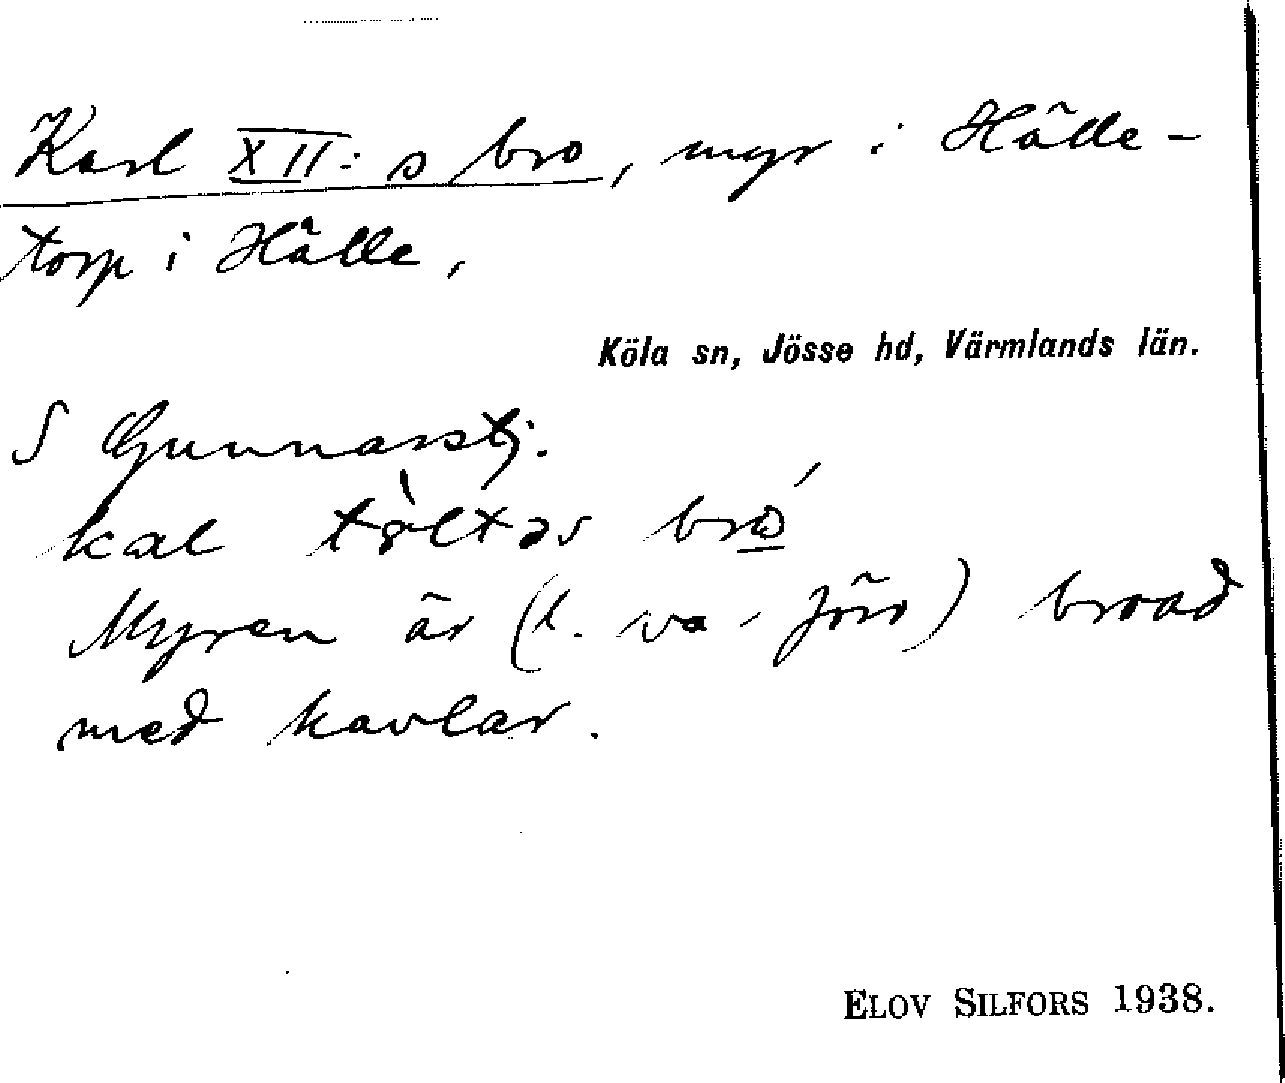 Karl XII:s bro, myr i Hälle-
torp i Hälle,
Köla sn, Jösse hd, Värmlands län.
S Gunnarstj.
kal
Myren är (l. va- förr) broad
med kavlar.
ELOV SILFORS 1938.